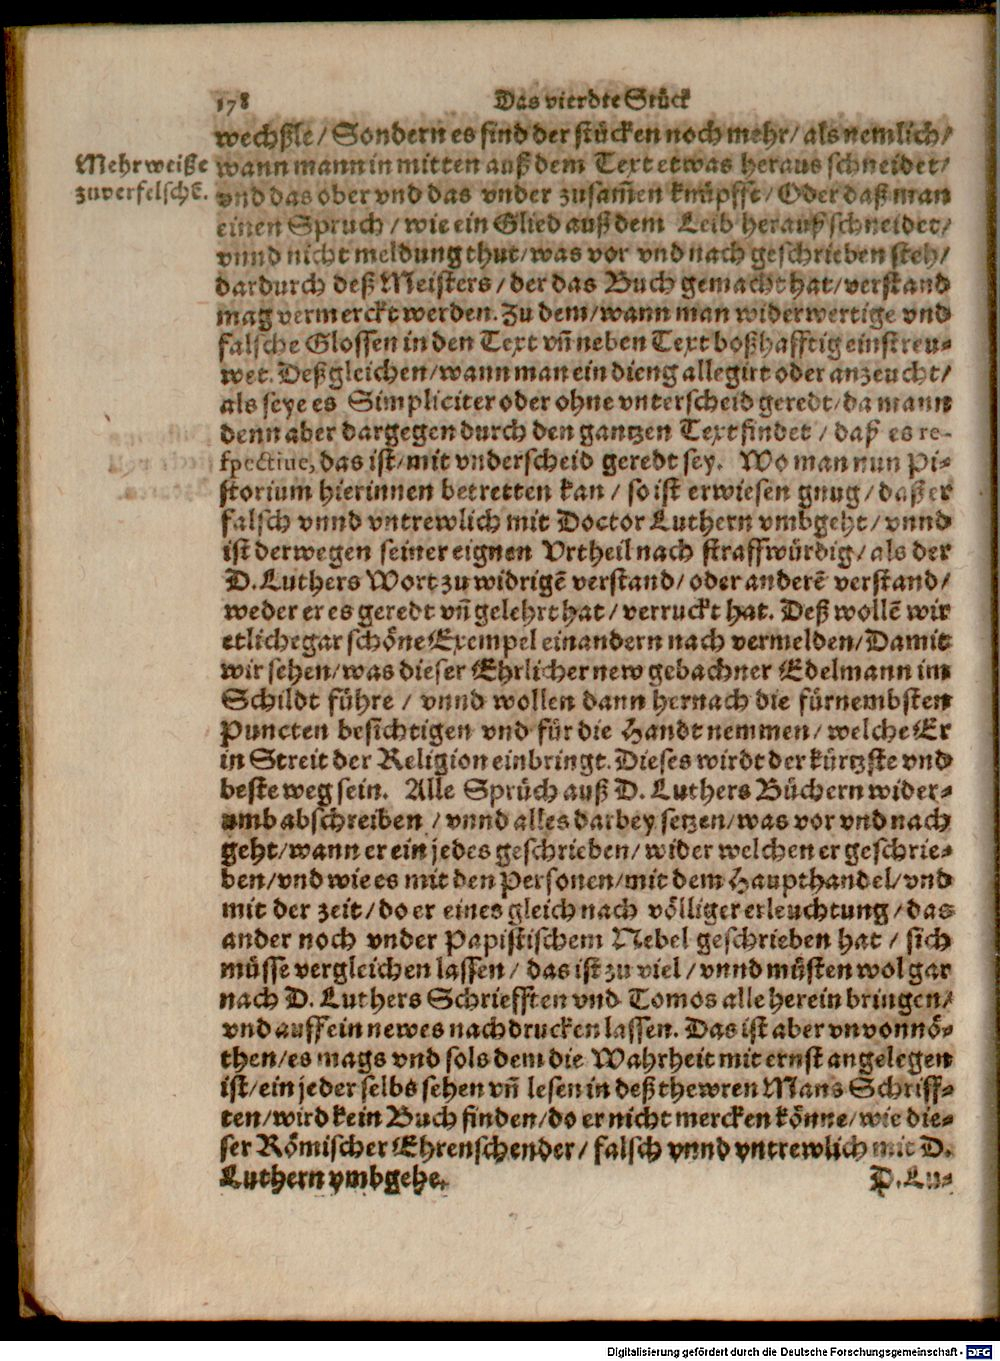 178 Das vierdte Stück
wechßle / Sondern es sind der stücken noch mehr / als nemlich /
Mehr weiße
zuverfelschẽ.
wann mann in mitten auß dem Text etwas heraus schneidet /
vnd das ober vnd das vnder zusam̃en knüpffe / Oder daß man
einen Spruch / wie ein Glied auß dem Leib herauß schneidet /
vnnd nicht meldung thut / was vor vnd nach geschrieben steh /
dardurch deß Meisters / der das Buch gemacht hat / verstand
mag vermerckt werden. Zu dem / wann man widerwertige vnd
falsche Glossen in den Text vñ neben Text boßhafftig einstreu-
wet. Deßgleichen / wann man ein dieng allegirt oder anzeucht /
als seye es Simpliciter oder ohne vnterscheid geredt / da mann
denn aber dargegen durch den gantzen Text findet / daß es re-
spectiue, das ist / mit vnderscheid geredt sey. Wo man nun Pi-
storium hierinnen betretten kan / so ist erwiesen gnug / daß er
falsch vnnd vntrewlich mit Doctor Luthern vmbgeht / vnnd
ist derwegen seiner eignen Vrtheil nach straffwürdig / als der
D. Luthers Wort zu widrigẽ verstand / oder anderẽ verstand /
weder er es geredt vñ gelehrt hat / verruckt hat. Deß wollẽ wir
etliche gar schöne Exempel einandern nach vermelden / Damit
wir sehen / was dieser Ehrlicher new gebachner Edelmann im
Schildt führe / vnnd wollen dann hernach die fürnembsten
Puncten besichtigen vnd für die Handt nemmen / welche Er
in Streit der Religion einbringt. Dieses wirdt der kürtzste vnd
beste weg sein. Alle Sprüch auß D. Luthers Büchern wider-
umb abschreiben / vnnd alles darbey setzen / was vor vnd nach
geht / wann er ein jedes geschrieben / wider welchen er geschrie-
ben / vnd wie es mit den Personen / mit dem Haupthandel / vnd
mit der zeit / do er eines gleich nach völliger erleuchtung / das
ander noch vnder Papistischem Nebel geschrieben hat / sich
müsse vergleichen lassen / das ist zu viel / vnnd müsten wol gar
nach D. Luthers Schriefften vnd Tomos alle herein bringen /
vnd auff ein newes nachdrucken lassen. Das ist aber vnvonnö-
then / es mags vnd sols dem die Wahrheit mit ernst angelegen
ist / ein jeder selbs sehen vñ lesen in deß thewren Mans Schriff-
ten / wird kein Buch finden / do er nicht mercken könne / wie die-
ser Römischer Ehrenschender / falsch vnnd vntrewlich mit D.
Luthern vmbgehe.
D. Lu-
Digitalisierung gefördert durch die Deutsche Forschungsgemeinschaft - DFG